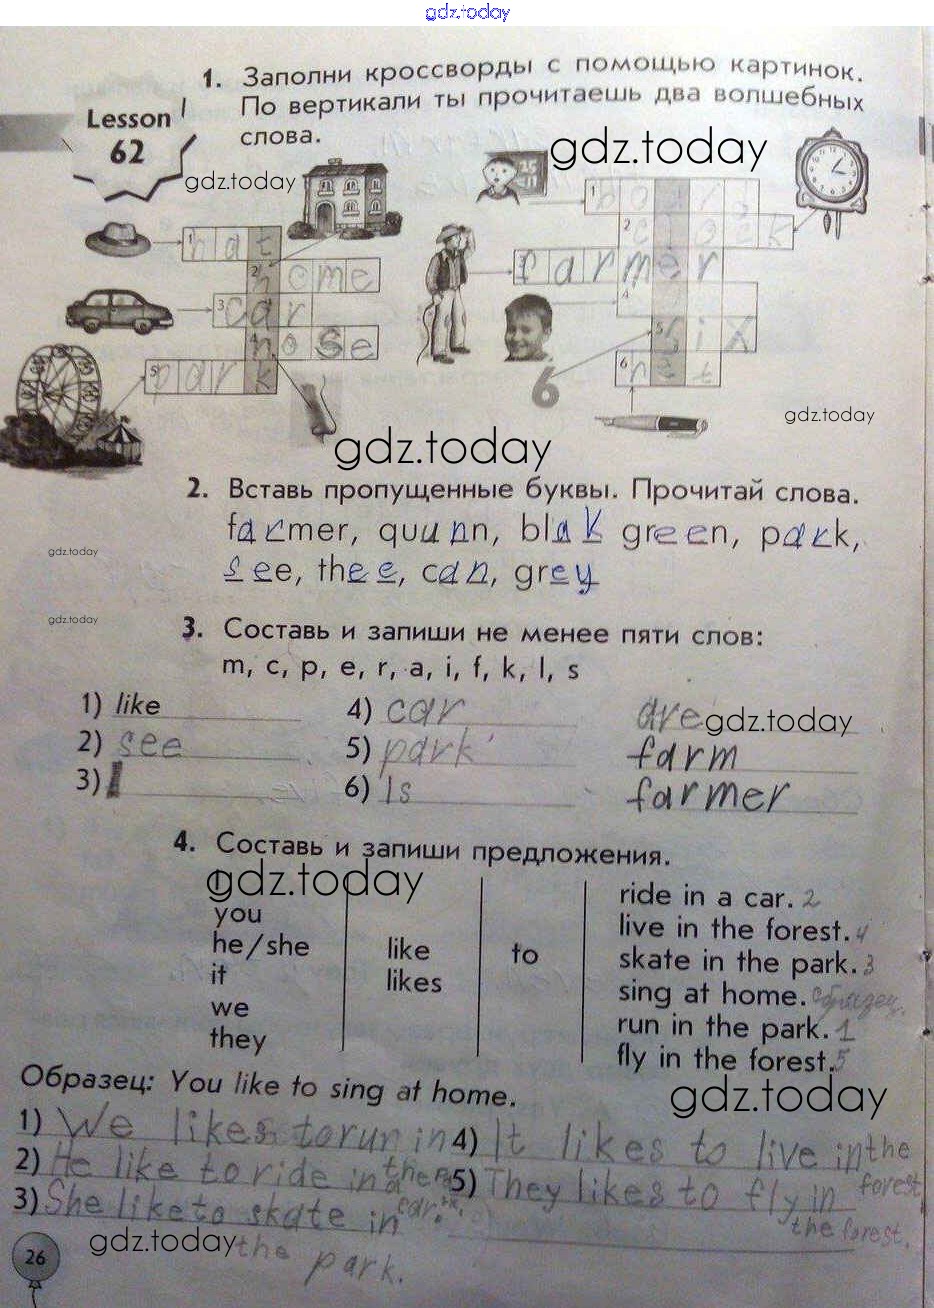 gdz.today
1. Заполни кроссворды с помощью картинок.
По вертикали ты прочитаешь два волшебных
слова.
Lesson
62
gdz.today
gdz.today
1 hat
2 home
3 car
4 nose
5 park
1 board
2 clock
3 farmer
4
5 six
6
6
gdz.today
gdz.today
2. Вставь пропущенные буквы. Прочитай слова.
farmer, quunn, blak green, park,
see, thee, can, grey
gdz.today
gdz.today
3. Составь и запиши не менее пяти слов:
m, c, p, e, r, a, i, f, k, l, s
1) like 4) car are
gdz.today
2) see 5) park farm
3) I 6) Is farmer
4. Составь и запиши предложения.
gdz.today
I
you
he/she
it
we
they
like
likes
to
ride in a car. 2
live in the forest. 4
skate in the park. 3
sing at home. образец.
run in the park. 1
fly in the forest. 5
Образец: You like to sing at home.
gdz.today
1) We likes to run in the
2) He like to ride in a car.
3) She like to skate in the park.
4) It likes to live in the forest
5) They likes to fly in the forest.
gdz.today
26